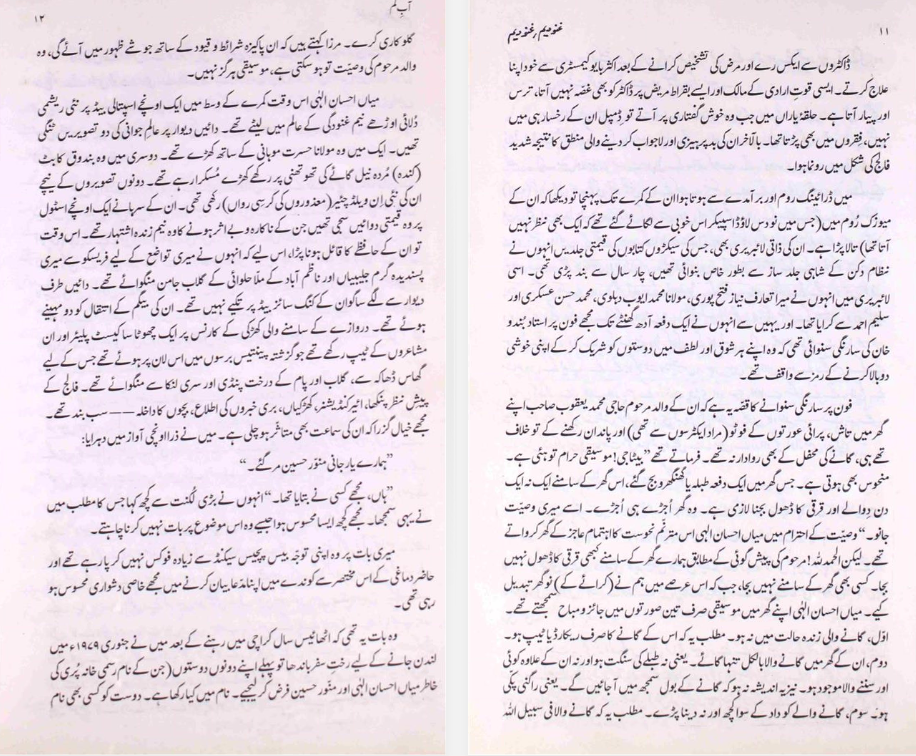 ۱۱
غنودیم غنودیم
ڈاکٹروں سے ایکس رے اور مرض کی تشخیص کرانے کے بعد اکثر بایوکیمسٹری سے خود اپنا
علاج کرتے۔ ایسی قوتِ ارادی کے مالک اور ایسے بقراط مریض پر ڈاکٹر کو بھی غصّہ نہیں آتا، ترس
اور پیار آتا ہے۔ حلقۂ یاراں میں جب وہ خوش گفتاری پر آتے تو ڈمپل ان کے رخسار ہی میں
نہیں، فقروں میں بھی پڑتا تھا۔ بالآخر ان کی بدپرہیزی اور لاجواب کر دینے والی منطق کا نتیجہ شدید
فالج کی شکل میں رونما ہوا۔
میں ڈرائینگ روم اور برآمدے سے ہوتا ہوا ان کے کمرے تک پہنچا تو دیکھا کہ ان کے
میوزک رُوم میں (جس میں نو دس لاؤڈ اسپیکر اس خوبی سے لگائے گئے تھے کہ ایک بھی نظر نہیں
آتا تھا) تالا پڑا ہے۔ ان کی ذاتی لائبریری بھی، جس کی سیکڑوں کتابوں کی قیمتی جلدیں انہوں نے
نظام دکن کے شاہی جلد ساز سے بطور خاص بنوائی تھیں، چار سال سے بند پڑی تھی۔ اسی
لائبریری میں انہوں نے میرا تعارف نیاز فتح پوری، مولانا محمد ایوب دہلوی، محمد حسن عسکری اور
سلیم احمد سے کرایا تھا۔ اور یہیں سے انہوں نے ایک دفعہ آدھ گھنٹے تک مجھے فون پر استاد بندو
خان کی سارنگی سنوائی تھی کہ وہ اپنے ہر شوق اور لطف میں دوستوں کو شریک کر کے اپنی خوشی
دوبالا کرنے کے رمز سے واقف تھے۔
فون پر سارنگی سنوانے کا قصّہ یہ ہے کہ ان کے والد مرحوم حاجی محمد یعقوب صاحب اپنے
گھر میں تاش، پرائی عورتوں کے فوٹو (مراد ایکٹرسوں سے تھی) اور پاندان رکھنے کے تو خلاف
تھے ہی، گانے کی محفل کے بھی روادار نہ تھے۔ فرماتے تھے "بیٹا جی! موسیقی حرام تو ہئی ہے۔
منحوس بھی ہوتی ہے۔ جس گھر میں ایک دفعہ طبلہ یا گھنگھرو بج گئے، اس گھر کے سامنے ایک نہ ایک
دن دوالے اور قرقی کا ڈھول بجنا لازمی ہے۔ وہ گھر اُجڑے ہی اُجڑے۔ اسے میری وصیّت
جانو۔" وصیّت کے احترام میں میاں احسان الٰہی اس مترنم نحوست کا اہتمام عاجز کے گھر کرواتے
تھے۔ لیکن الحمدللہ! مرحوم کی پیش گوئی کے مطابق ہمارے گھر کے سامنے کبھی قرقی کا ڈھول نہیں
بجا۔ کسی بھی گھر کے سامنے نہیں بجا، جب کہ اس عرصے میں ہم نے (کرائے کے) نو گھر تبدیل
کیے۔ میاں احسان الٰہی اپنے گھر میں موسیقی صرف تین صورتوں میں جائز و مباح سمجھتے تھے۔
اوّل، گانے والی زندہ حالت میں نہ ہو۔ مطلب یہ کہ اس کے گانے کا صرف ریکارڈ یا ٹیپ ہو۔
دوم، ان کے گھر میں گانے والا بالکل تنہا گائے۔ یعنی نہ طبلے کی سنگت ہو اور نہ ان کے علاوہ کوئی
اور سننے والا موجود ہو۔ نیز یہ اندیشہ نہ ہو کہ گانے کے بول سمجھ میں آ جائیں گے۔ یعنی راگنی پکّی
ہو۔ سوم، گانے والے کو داد کے سوا کچھ اور نہ دینا پڑے۔ مطلب یہ کہ گانے والا فی سبیل اللہ
آبِ گم
۱۲
گلوکاری کرے۔ مرزا کہتے ہیں کہ ان پاکیزہ شرائط و قیود کے ساتھ جو شے ظہور میں آئے گی، وہ
والد مرحوم کی وصیّت تو ہو سکتی ہے، موسیقی ہرگز نہیں۔
میاں احسان الٰہی اس وقت کمرے کے وسط میں ایک اونچے اسپتالی بیڈ پر نئی ریشمی
دُلائی اوڑھے نیم غنودگی کے عالم میں لیٹے تھے۔ دائیں دیوار پر عالمِ جوانی کی دو تصویریں ٹنگی
تھیں۔ ایک میں وہ مولانا حسرت موہانی کے ساتھ کھڑے تھے۔ دوسری میں وہ بندوق کا بٹ
(کندہ) مُردہ نیل گائے کی تھوتھنی پر رکھے کھڑے مُسکرا رہے تھے۔ دونوں تصویروں کے نیچے
ان کی نئی اِن ویلڈ چیئر (معذوروں کی کرسیِ رواں) رکھی تھی۔ ان کے سرہانے ایک اونچے اسٹول
پر وہ قیمتی دوائیں سجی تھیں جن کے ناکارہ و بے اثر ہونے کا وہ نیم زندہ اشتہار تھے۔ اس وقت
تو ان کے حافظے کا قائل ہونا پڑا، اس لیے کہ انہوں نے میری تواضع کے لیے فریسکو سے میری
پسندیدہ گرم جلیبیاں اور ناظم آباد کے ملّا حلوائی کے گلاب جامن منگوائے تھے۔ دائیں طرف
دیوار سے لگے ساگوان کے کنگ سائز بیڈ پر تکیے نہیں تھے۔ ان کی بیگم کے انتقال کو دو مہینے
ہوئے تھے۔ دروازے کے سامنے والی کھڑکی کے کارنس پر ایک چھوٹا سا کیسٹ پلیئر اور ان
مشاعروں کے ٹیپ رکھے تھے جو گزشتہ پینتیس برسوں میں اس لان پر ہوئے تھے جس کے لیے
گھاس ڈھاکہ سے، گلاب اور پام کے درخت پنڈی اور سری لنکا سے منگوائے تھے۔ فالج کے
پیشِ نظر پنکھا، ائیرکنڈیشنر، کھڑکیاں، بری خبروں کی اطلاع، بچّوں کا داخلہ —— سب بند تھے۔
مجھے خیال گزرا کہ ان کی سماعت بھی متاثر ہو چلی ہے۔ میں نے ذرا اونچی آواز میں دہرایا:
"ہمارے یار جانی منوّر حسین مر گئے۔"
"ہاں، مجھے کسی نے بتایا تھا۔" انہوں نے بڑی لکنت سے کچھ کہا جس کا مطلب میں
نے یہی سمجھا۔ مجھے کچھ ایسا محسوس ہوا جیسے وہ اس موضوع پر بات نہیں کرنا چاہتے۔
میری بات پر وہ اپنی توجّہ بیس پچیس سیکنڈ سے زیادہ فوکس نہیں کر پا رہے تھے اور
حاضر دماغی کے اس مختصر سے کوندے میں اپنا مدّعا بیان کرنے میں مجھے خاصی دشواری محسوس ہو
رہی تھی۔
وہ بات یہ تھی کہ اٹھائیس سال کراچی میں رہنے کے بعد میں نے جنوری ۱۹۷۹ء میں
لندن جانے کے لیے رختِ سفر باندھا تو پہلے اپنے دونوں دوستوں (جن کے نام رسمی خانہ پُری کی
خاطر میاں احسان الٰہی اور منوّر حسین فرض کر لیجیے۔ نام میں کیا رکھا ہے۔ دوست کو کسی بھی نام